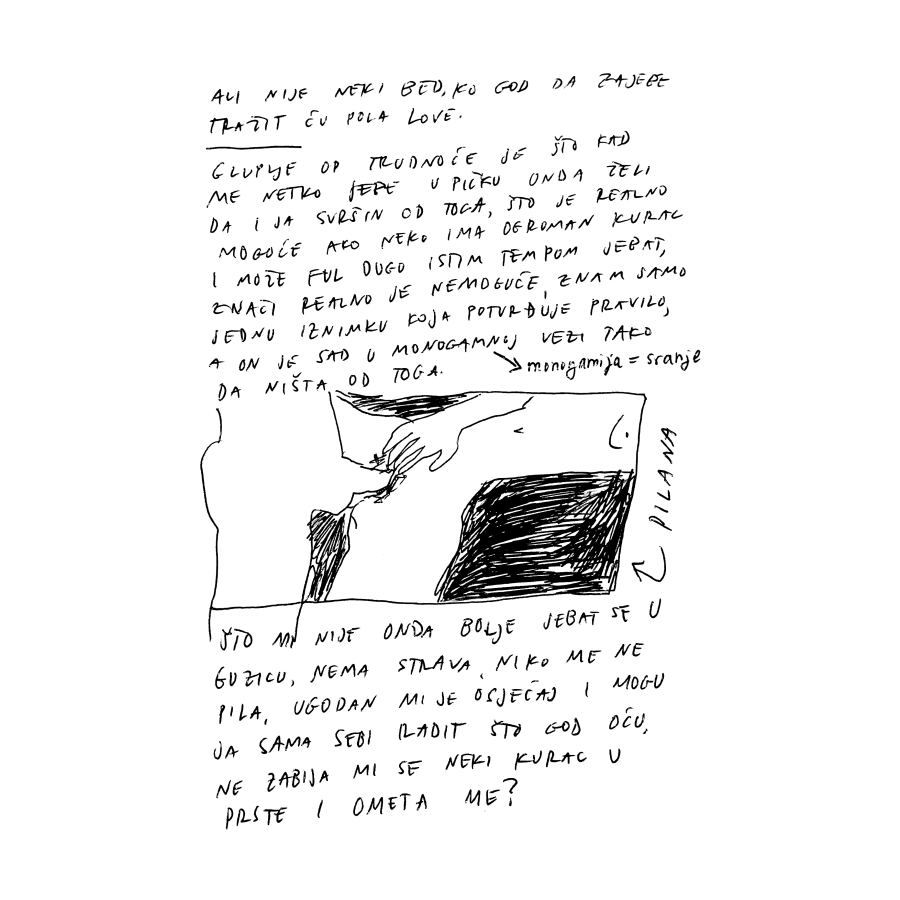 ALI NIJE NEKI BED, KO GOD DA ZAJEBE
TRAŽIT ĆU POLA LOVE.
GLUPLJE OD TRUDNOĆE JE ŠTO KAD
ME NETKO JEBE U PIČKU ONDA ŽELI
DA I JA SVRŠIN OD TOGA, ŠTO JE REALNO
MOGUĆE AKO NEKO IMA OGROMAN KURAC
I MOŽE FUL DUGO ISTIM TEMPOM JEBAT,
ZNAČI REALNO JE NEMOGUĆE, ZNAM SAMO
JEDNU IZNIMKU KOJA POTVRĐUJE PRAVILO,
A ON JE SAD U MONOGAMNOJ VEZI TAKO
monogamija = sranje
DA NIŠTA OD TOGA.
PILANA
ŠTO MI NIJE ONDA BOLJE JEBAT SE U
GUZICU, NEMA STRAVA, NIKO ME NE
PILA, UGODAN MI JE OSJEĆAJ I MOGU
JA SAMA SEBI RADIT ŠTO GOD OĆU,
NE ZABIJA MI SE NEKI KURAC U
PRSTE I OMETA ME?